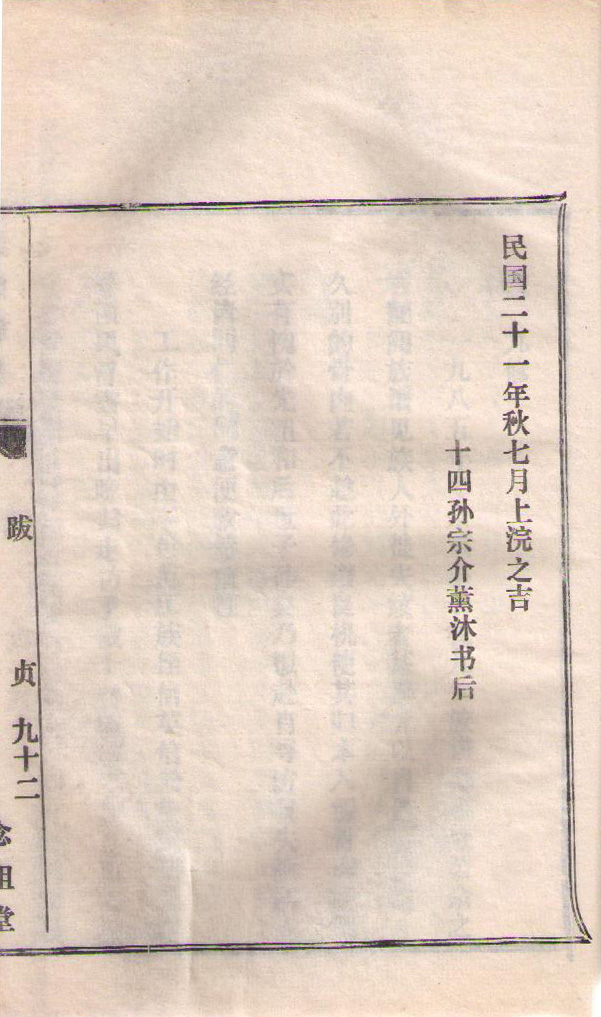 民国二十一年秋七月上浣之吉
十四孙宗介薰沐书后
跋
贞 九十二
念祖堂